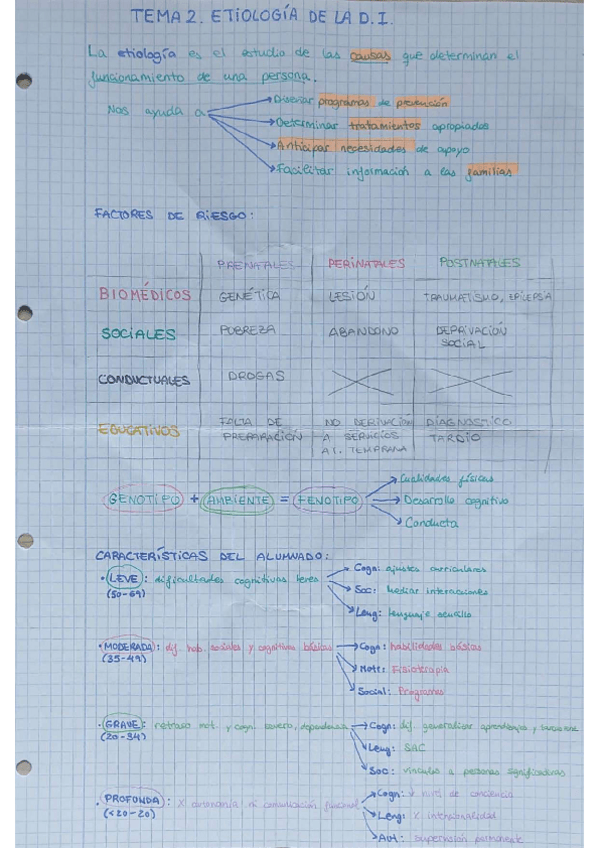 TEMA 2. ETIOLOGÍA DE LA D.I.
La etiología es el estudio de las causas que determinan el
funcionamiento de una persona.
Nos ayuda a
Diseñar programas de prevención
Determinar tratamientos apropiados
Anticipar necesidades de apoyo
Facilitar información a las familias
FACTORES DE RIESGO:
PRENATALES PERINATALES POSTNATALES
BIOMÉDICOS GENÉTICA LESIÓN TRAUMATISMO, EPILEPSIA
SOCIALES POBREZA ABANDONO DEPRIVACIÓN
SOCIAL
CONDUCTUALES DROGAS
EDUCATIVOS FALTA DE NO DERIVACIÓN DIAGNOSTICO
PREPARACIÓN A SERVICIOS TARDÍO
AT. TEMPRANA
GENOTIPO + AMBIENTE = FENOTIPO
Cualidades físicas
Desarrollo cognitivo
Conducta
CARACTERÍSTICAS DEL ALUMNADO:
· LEVE: dificultades cognitivas leves Cogn: ajustes curriculares
(50-69) Soc: Mediar interacciones
Leng: lenguaje sencillo
· MODERADA: dif. hab. sociales y cognitivas básicas Cogn: habilidades básicas
(35-49) Motr: Fisioterapia
Social: Programas
· GRAVE: retraso mot. y cogn. severo, dependencia Cogn: dif. generalizar aprendizajes y
(20-34) Leng: SAC
Soc: vínculos a personas significativas
· PROFUNDA: X autonomía ni comunicación funcional Cogn: ↓ nivel de conciencia
(<20-20) Leng: X intencionalidad
Aut: supervisión permanente